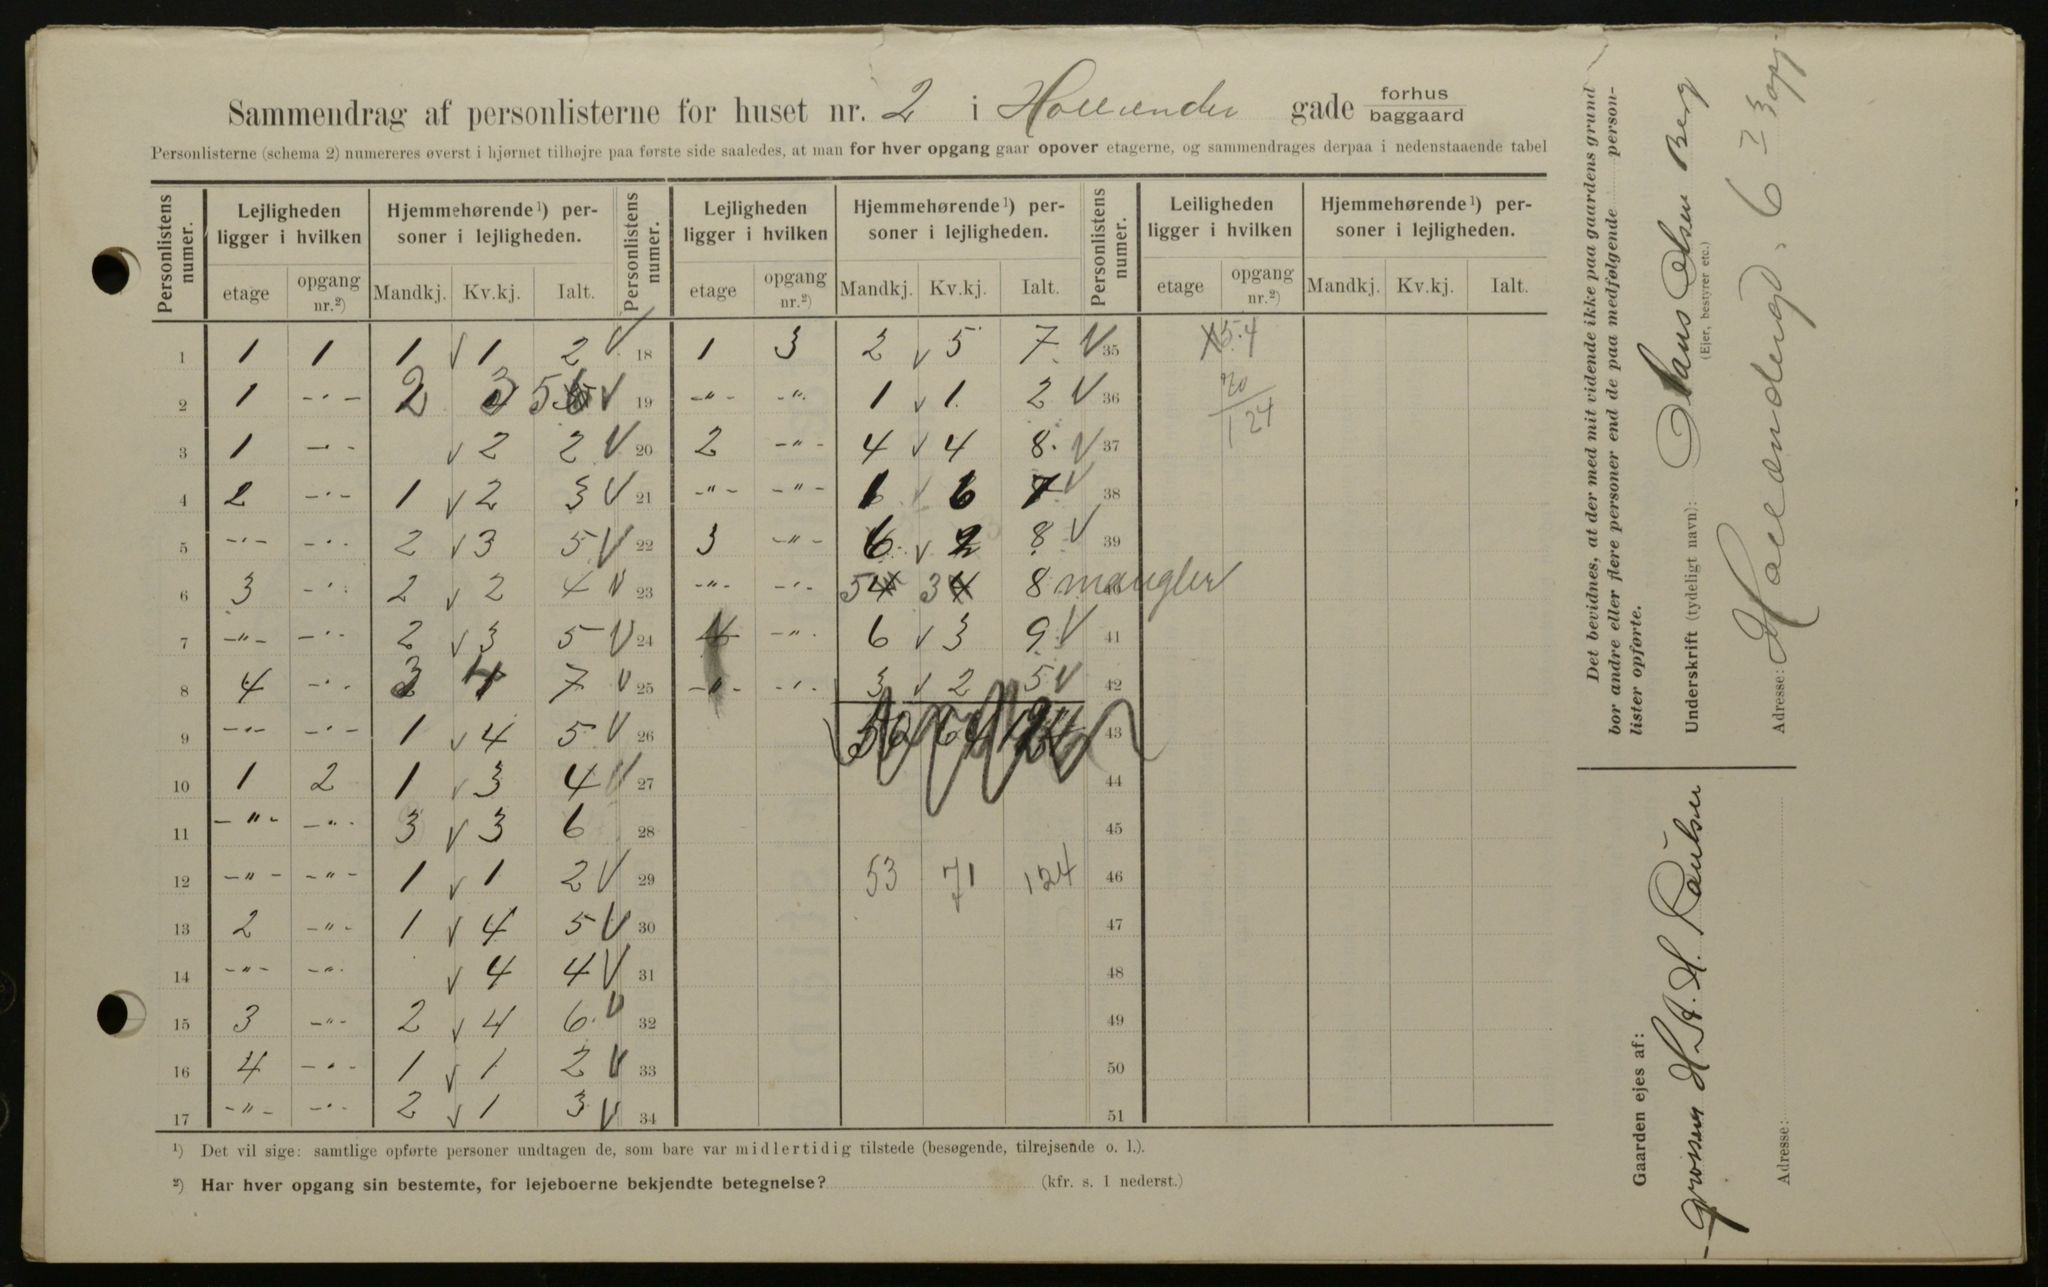 Sammendrag af personlisterne for huset nr. 2 i Hollænder gade forhus baggaard
Personlisterne (schema 2) numereres øverst i hjørnet tilhøjre paa første side saaledes, at man for hver opgang gaar opover etagerne, og sammendrages derpaa i nedenstaaende tabel
Personlistens numer. Lejligheden ligger i hvilken Hjemmehørende ¹) personer i lejligheden. Personlistens numer. Lejligheden ligger i hvilken Hjemmehørende ¹) personer i lejligheden. Personlistens numer. Leiligheden ligger i hvilken Hjemmehørende ¹) personer i lejligheden.
etage opgang nr.²) Mandkj. Kv.kj. Ialt. etage opgang nr.²) Mandkj. Kv.kj. Ialt. etage opgang nr.²) Mandkj. Kv.kj. Ialt.
1 1 1 1 1 2 18 1 3 2 5 7 35 54
2 1 -"- 2 3 5 19 -"- -"- 1 1 2 36 70
3 1 -"- 2 2 20 2 -"- 4 4 8 37 124
4 2 -"- 1 2 3 21 -"- -"- 1 6 7 38
5 -"- -"- 2 3 5 22 3 -"- 6 2 8 39
6 3 -"- 2 2 4 23 -"- -"- 5 3 8 mangler
7 -"- -"- 2 3 5 24 4 -"- 6 3 9 41
8 4 -"- 3 4 7 25 -"- -"- 3 2 5 42
9 -"- -"- 1 4 5 26 43
10 1 2 1 3 4 27 44
11 -"- -"- 3 3 6 28 45
12 -"- -"- 1 1 2 29 53 71 124 46
13 2 -"- 1 4 5 30 47
14 -"- -"- 4 4 31 48
15 3 -"- 2 4 6 32 49
16 4 -"- 1 1 2 33 50
17 -"- -"- 2 1 3 34 51
¹) Det vil sige: samtlige opførte personer undtagen de, som bare var midlertidig tilstede (besøgende, tilrejsende o. l.).
²) Har hver opgang sin bestemte, for lejeboerne bekjendte betegnelse? (kfr. s. 1 nederst.)
Det bevidnes, at der med mit vidende ikke paa gaardens grund
bor andre eller flere personer end de paa medfølgende person-
lister opførte.
Underskrift (tydeligt navn): Hans Olsen Berg
(Ejer, bestyrer etc.)
Adresse: Hollændergd. 6 I 3 opg.
Gaarden ejes af:
Grosser H. St. H. Paulsen
Adresse: